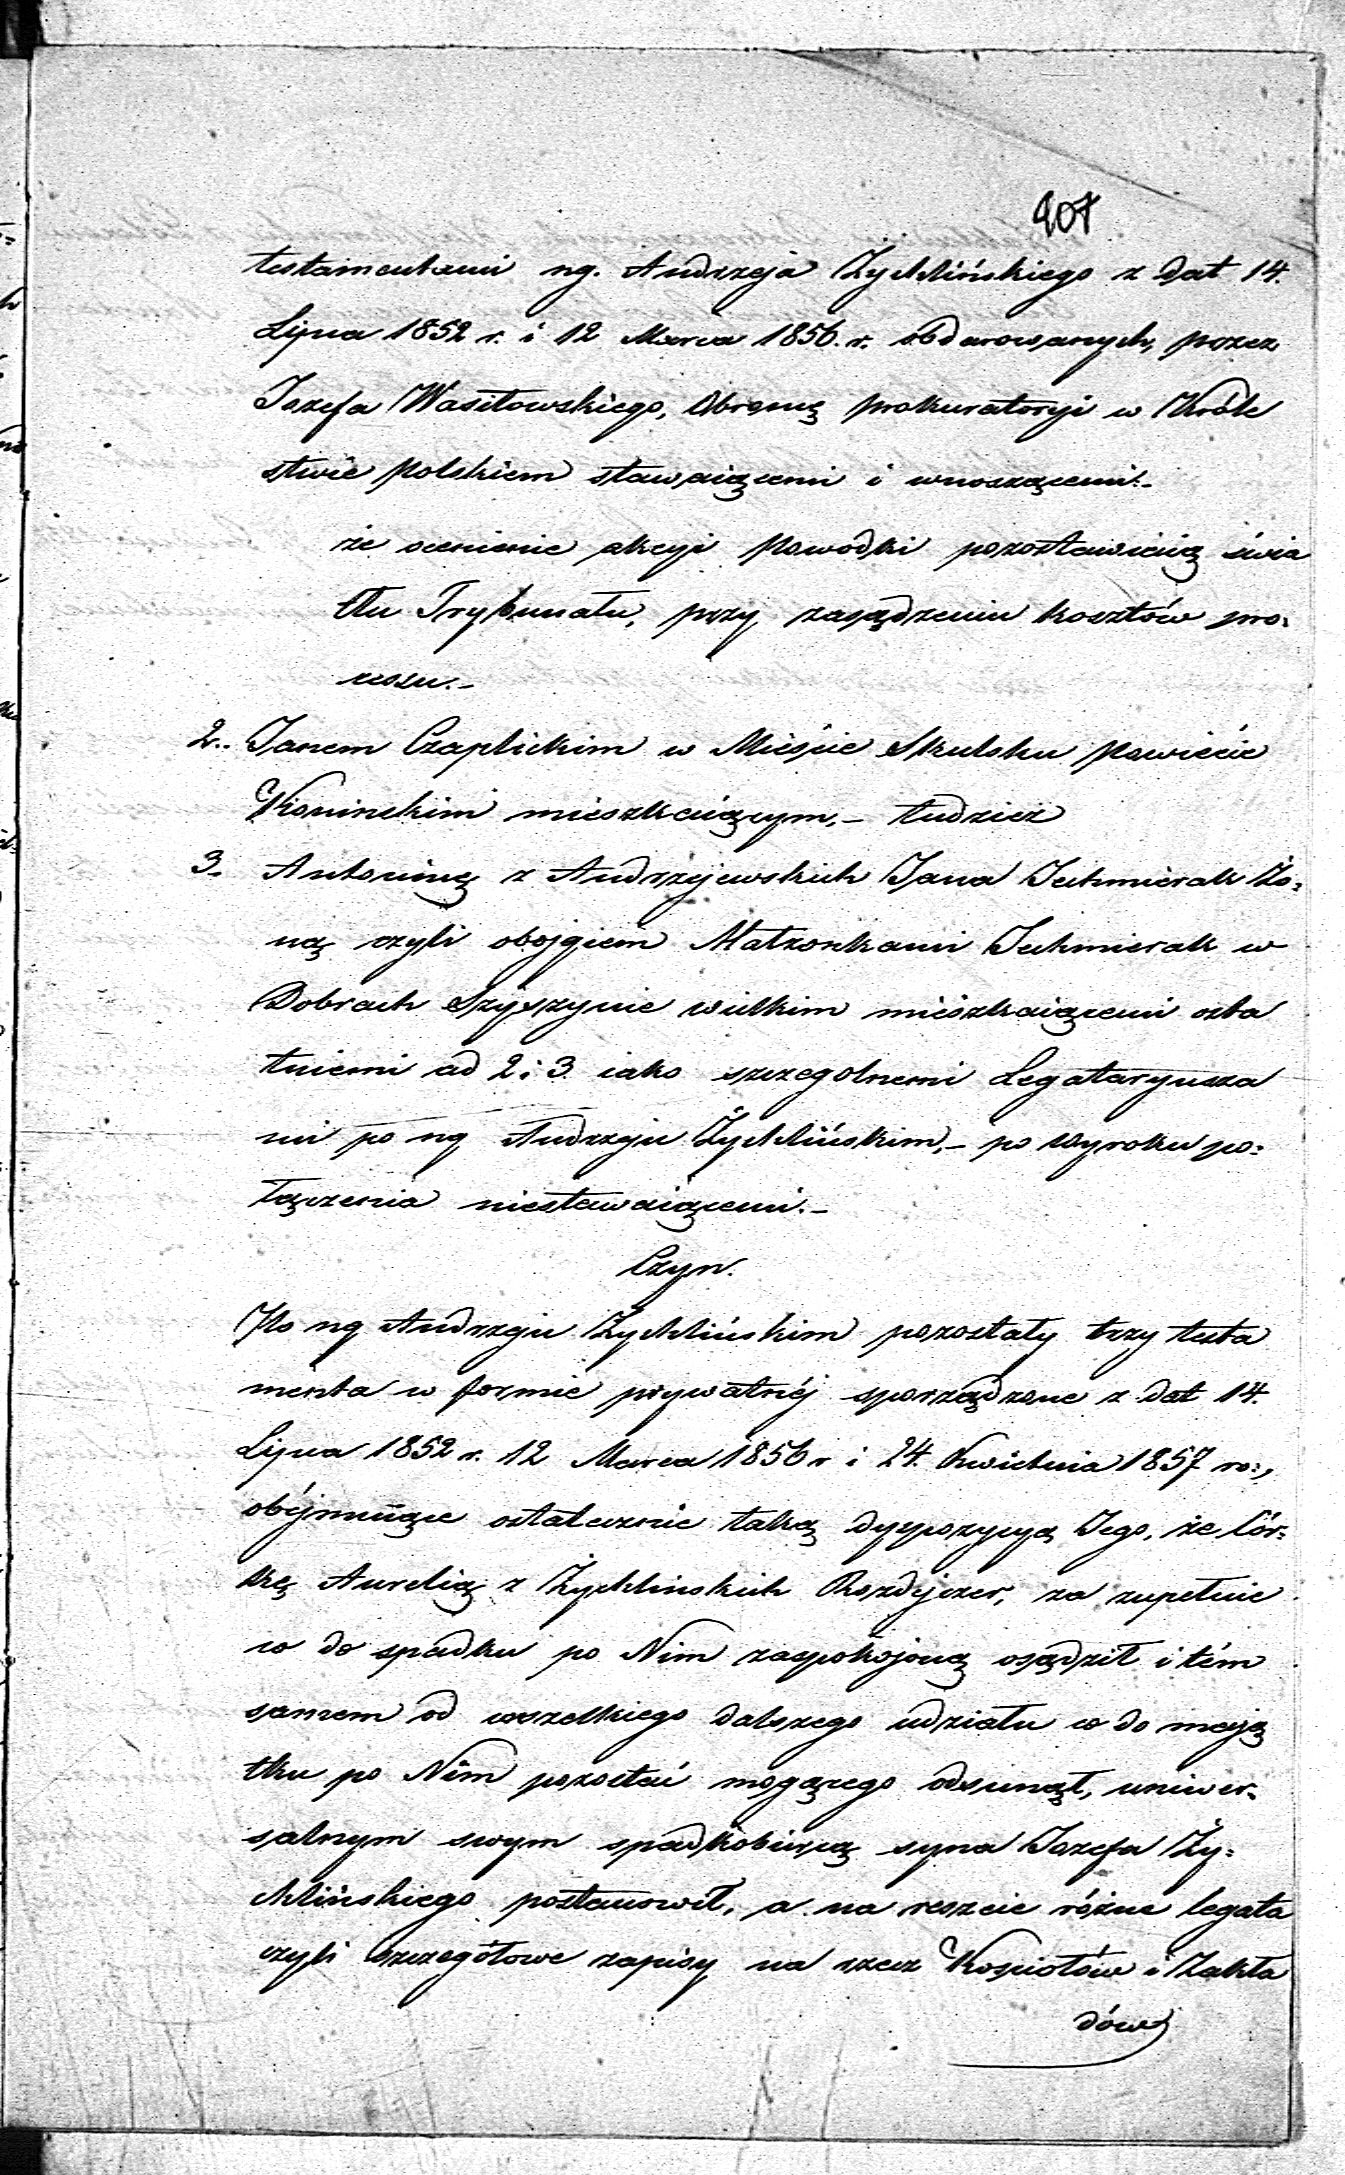 207
testamentami ng. Andrzeja Żychlińskiego z dat 14.
Lipca 1852 r. i 12 Marca 1856. r. obdarowanych, przez
Jozefa Wasiłowskiego, Obrońcę prokuratoryi w Króle
stwie Polskiem stawaiącemi i wnoszącemi:-
że ocenienie akcyi Powodki pozostawiaią świa
tłu Trybunału, przy zasądzeniu kosztów pro:
cessu.-
2.. Janem Czaplickim w Mieście Skulsku Powiecie
Konińskim mieszkaiącym,- tudzież
3. Antoniną z Andrzejewskich Jana Jachmierak Żo:
ną czyli obojgiem Małżonkami Jachmierak w
Dobrach Szyszynie wielkim mieszkaiącemi osta
tniemi ad 2 i 3 iako szczegolnemi Legataryusza
mi po ng Andrzeju Żychlińskim,- po wyroku po:
łączenia niestawaiącemi.-
Czyn.
Po ng Andrzeju Żychlińskim pozostały trzy testa
menta w formie prywatnéj sporządzone z dat 14.
Lipca 1852 r. 12 Marca 1856 r i 24. Kwietnia 1857 ro:,
obéjmuiące ostatecznie taką dyspozycyą Jego, że Cór:
kę Aurelią z Żychlinskich Rozdejczer, za zupełnie
co do spadku po Nim zaspokojoną osądził i tém
samem od wszelkiego dalszego udziału co do mają
tku po Nim pozostać mogącego odsunął, uniwer:
salnym swym spadkobiercą syna Jozefa Ży:
chlińskiego postanowił, a na reszcie różne legata
czyli szczegółowe zapisy na rzecz Kościołów i Zakła
dów